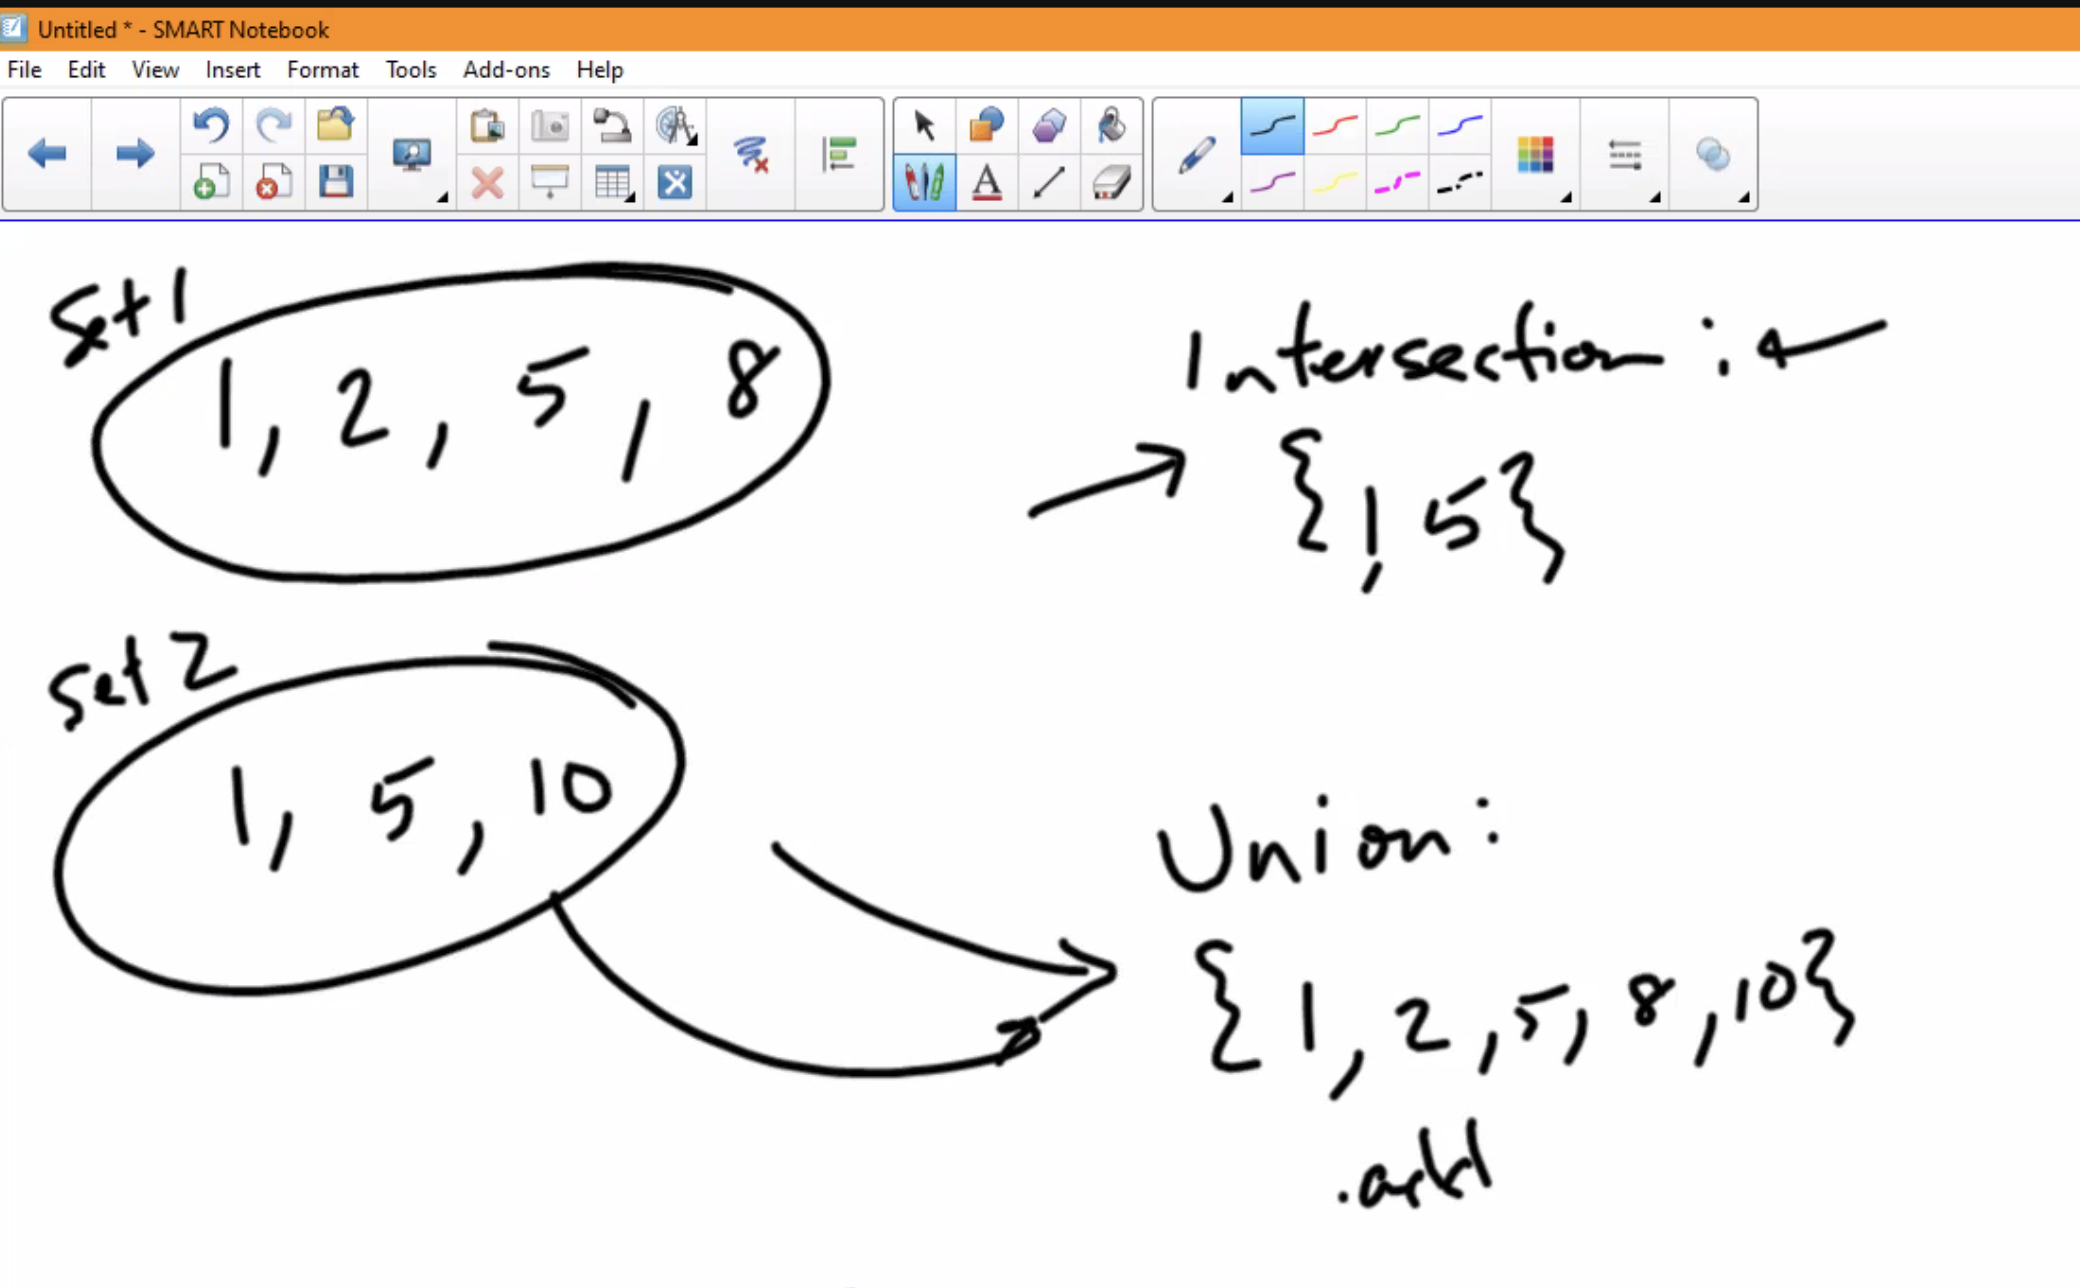 Untitled * - SMART Notebook
File Edit View Insert Format Tools Add-ons Help
Set 1
1, 2, 5, 8
Intersection:
{1, 5}
Set 2
1, 5, 10
Union:
{1, 2, 5, 8, 10}
.add